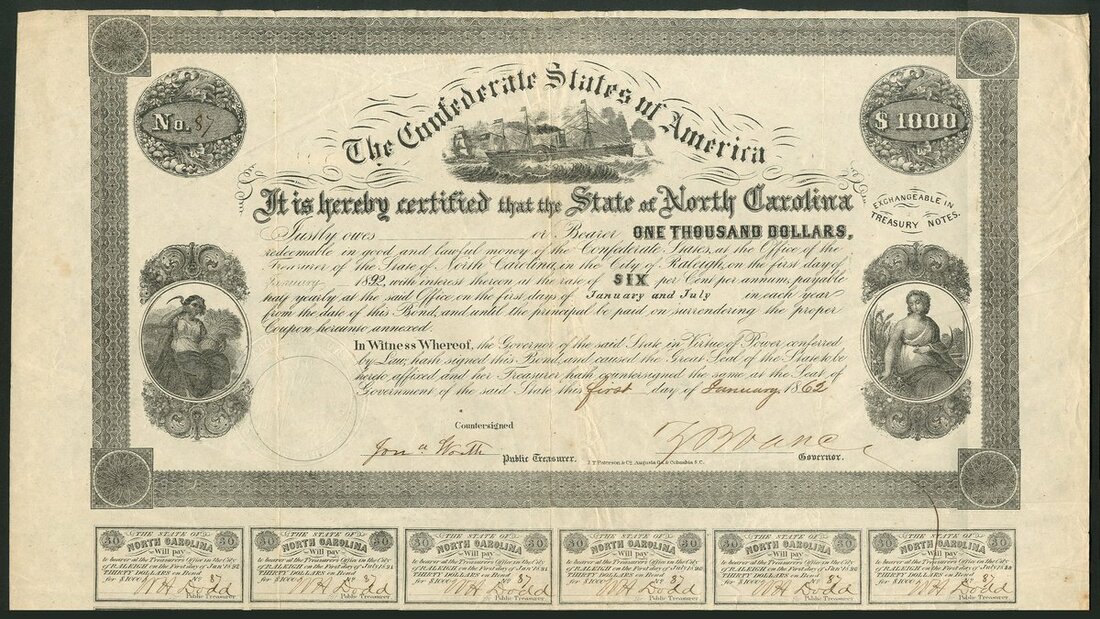 The Confederate States of America
No. 87
$ 1000
It is hereby certified that the State of North Carolina
EXCHANGEABLE IN
TREASURY NOTES.
Justly owes or Bearer ONE THOUSAND DOLLARS,
redeemable in good and lawful money of the Confederate States, at the Office of the
Treasurer of the State of North Carolina, in the City of Raleigh, on the first day of
January 1892, with interest thereon at the rate of SIX per Cent per annum, payable
half yearly at the said Office on the first days of January and July in each year
from the date of this Bond, and until the principal be paid on surrendering the proper
Coupon hereunto annexed.
In Witness Whereof, the Governor of the said State in Virtue of Power conferred
by Law, hath signed this Bond, and caused the Great Seal of the State to be
hereto affixed and her Treasurer hath countersigned the same at the Seat of
Government of the said State this first day of January 1862
Countersigned
Jona Worth Public Treasurer.
J.T. Paterson & Co. Augusta Ga. & Columbia S.C.
Z B Vance Governor.
30 THE STATE OF 30
NORTH CAROLINA
Will pay
to bearer at the Treasurers Office in the City
of RALEIGH on the First day of Jan'y 18.92
THIRTY DOLLARS on Bond
for $1000 No 87
W H Dodd
Public Treasurer
30 THE STATE OF 30
NORTH CAROLINA
Will pay
to bearer at the Treasurers Office in the City
of RALEIGH on the First day of July 18.91
THIRTY DOLLARS on Bond
for $1000 No 87
W H Dodd
Public Treasurer
30 THE STATE OF 30
NORTH CAROLINA
Will pay
to bearer at the Treasurers Office in the City
of RALEIGH on the First day of Jan'y 18.91
THIRTY DOLLARS on Bond
for $1000 No 87
W H Dodd
Public Treasurer
30 THE STATE OF 30
NORTH CAROLINA
Will pay
to bearer at the Treasurers Office in the City
of RALEIGH on the First day of July 18.90
THIRTY DOLLARS on Bond
for $1000 No 87
W H Dodd
Public Treasurer
30 THE STATE OF 30
NORTH CAROLINA
Will pay
to bearer at the Treasurers Office in the City
of RALEIGH on the First day of Jan'y 18.90
THIRTY DOLLARS on Bond
for $1000 No 87
W H Dodd
Public Treasurer
30 THE STATE OF 30
NORTH CAROLINA
Will pay
to bearer at the Treasurers Office in the City
of RALEIGH on the First day of July 18
THIRTY DOLLARS on Bond
for $1000 No 87
W H Dodd
Public Treasurer